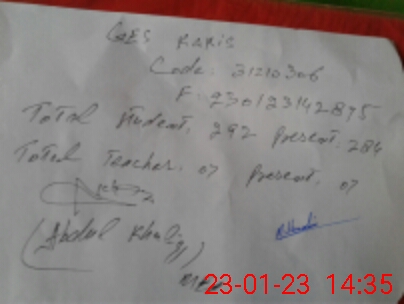 GES KAKIS
Code: 31210306
F: 230123142875
Total student. 292 present. 284
Total Teacher. 07 present. 07
(Abdul Khaliq)
23-01-23 14:35